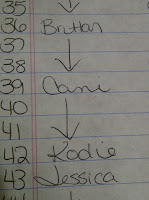 35
36 Brittan
37
38
39 Dani
40
41
42 Kodie
43 Jessica